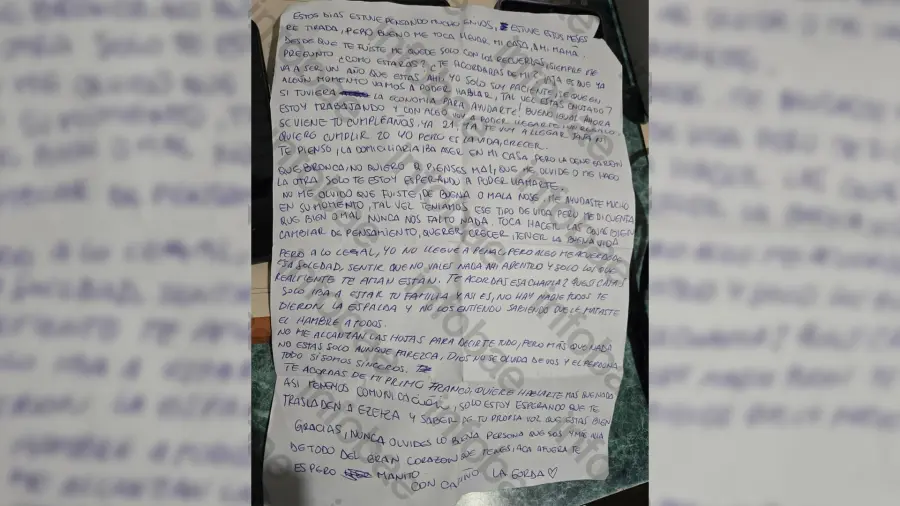 ESTOS DIAS ESTUVE PENSANDO MUCHO EN VOS, ESTUVE ESTOS MESES
RE TIRADA, PERO BUENO ME TOCA LLEVAR MI CASA, A MI MAMÁ
DESDE QUE TE FUISTE ME QUEDE SOLO CON LOS RECUERDOS, SIEMPRE ME
PREGUNTO ¿COMO ESTARÁS? ¿TE ACORDARAS DE MI? ES QUE YA
VA A SER UN AÑO QUE ESTAS AHI, YO SOLO SOY PACIENTE, SE QUE EN
ALGÚN MOMENTO VAMOS A PODER HABLAR, TAL VEZ ESTAS
SI TUVIERA LA ECONOMIA PARA AYUDARTE! BUENO IGUAL AHORA
ESTOY TRABAJANDO Y CON ALGO VOY A PODER LLEGARTE, UN REGALO,
SE VIENE TU CUMPLEAÑOS, YA 21, YA TE VOY A LLEGAR
QUIERO CUMPLIR 20 YO PERO ES LA VIDA, CRECER.
TE PIENSO, LA DOMICILIARIA IBA A SER EN MI CASA PERO LA
QUE BRONCA, NO QUIERO Q PIENSES MAL, QUE ME OLVIDE O ME HAGO
LA OTRA, SOLO TE ESTOY ESPERANDO A PODER LLAMARTE.
NO ME OLVIDO QUE FUISTE, DE BUENA O MALA NOSE, ME AYUDASTE MUCHO
EN SU MOMENTO, TAL VEZ TENIAMOS ESE TIPO DE VIDA PERO ME DI CUENTA
QUE BIEN O MAL NUNCA NOS FALTO NADA, TOCA HACER LAS COSAS BIEN
CAMBIAR DE PENSAMIENTO, QUERER CRECER, TENER LA BUENA VIDA
PERO A LO LEGAL, YO NO LLEGUE A PENAL, PERO ALGO ME ACUERDO DE
ESA SOLEDAD, SENTIR QUE NO VALES NADA AHI ADENTRO Y SOLO LOS QUE
REALMENTE TE AMAN ESTAN. TE ACORDAS ESA CHARLA?
SOLO IBA A ESTAR TU FAMILIA Y ASI ES, NO HAY NADIE TODOS TE
DIERON LA ESPALDA Y NO LOS ENTIENDO SABIENDO QUE LE MATASTE
EL HAMBRE A TODOS.
NO ME ALCANZAN LAS HOJAS PARA DECIRTE TODO, PERO MÁS QUE NADA
NO ESTAS SOLO AUNQUE PAREZCA, DIOS NO SE OLVIDA DE VOS Y EL PERDONA
TODO SI SOMOS SINCEROS.
TE ACORDAS DE MI PRIMO FRANCO, QUIERE HABLARTE MAS QUE NADA
ASI TENEMOS COMUNICACIÓN, SOLO ESTOY ESPERANDO QUE TE
TRASLADEN A EZEIZA Y SABER DE TU PROPIA VOZ QUE ESTAS BIEN
GRACIAS, NUNCA OLVIDES LO BUENA PERSONA QUE SOS Y MAS ALLA
DE TODO DEL GRAN CORAZON QUE TENES, ACA AFUERA TE
ESPERO MANITO
CON CARIÑO LA GORDA♡